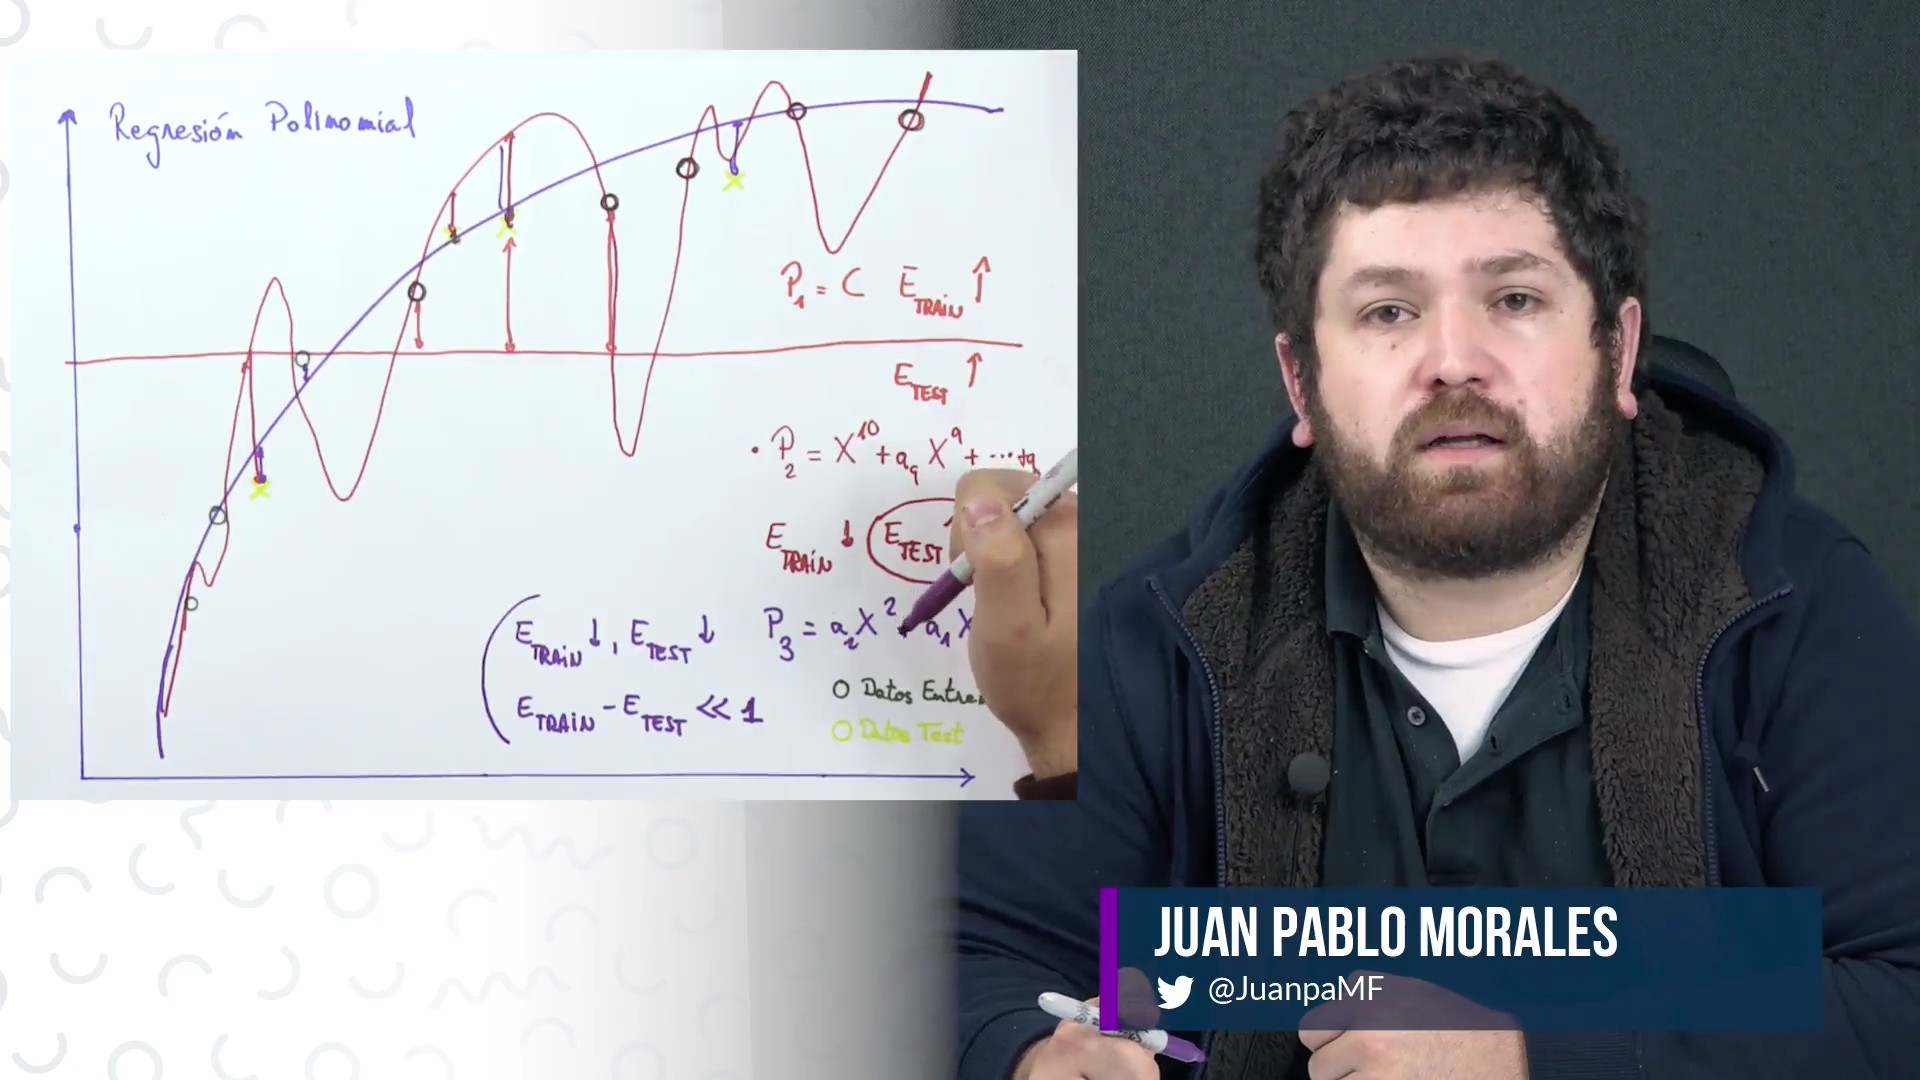 Regresión Polinomial
P₁ = C E_TRAIN ↑
E_TEST ↑
• P₂ = X¹⁰ + a₉ X⁹ + ... +
E_TRAIN ↓ E_TEST
E_TRAIN ↓, E_TEST ↓
E_TRAIN - E_TEST << 1
P₃ = a₂X² a₁X
O Datos
O Datos Test
JUAN PABLO MORALES
@JuanpaMF